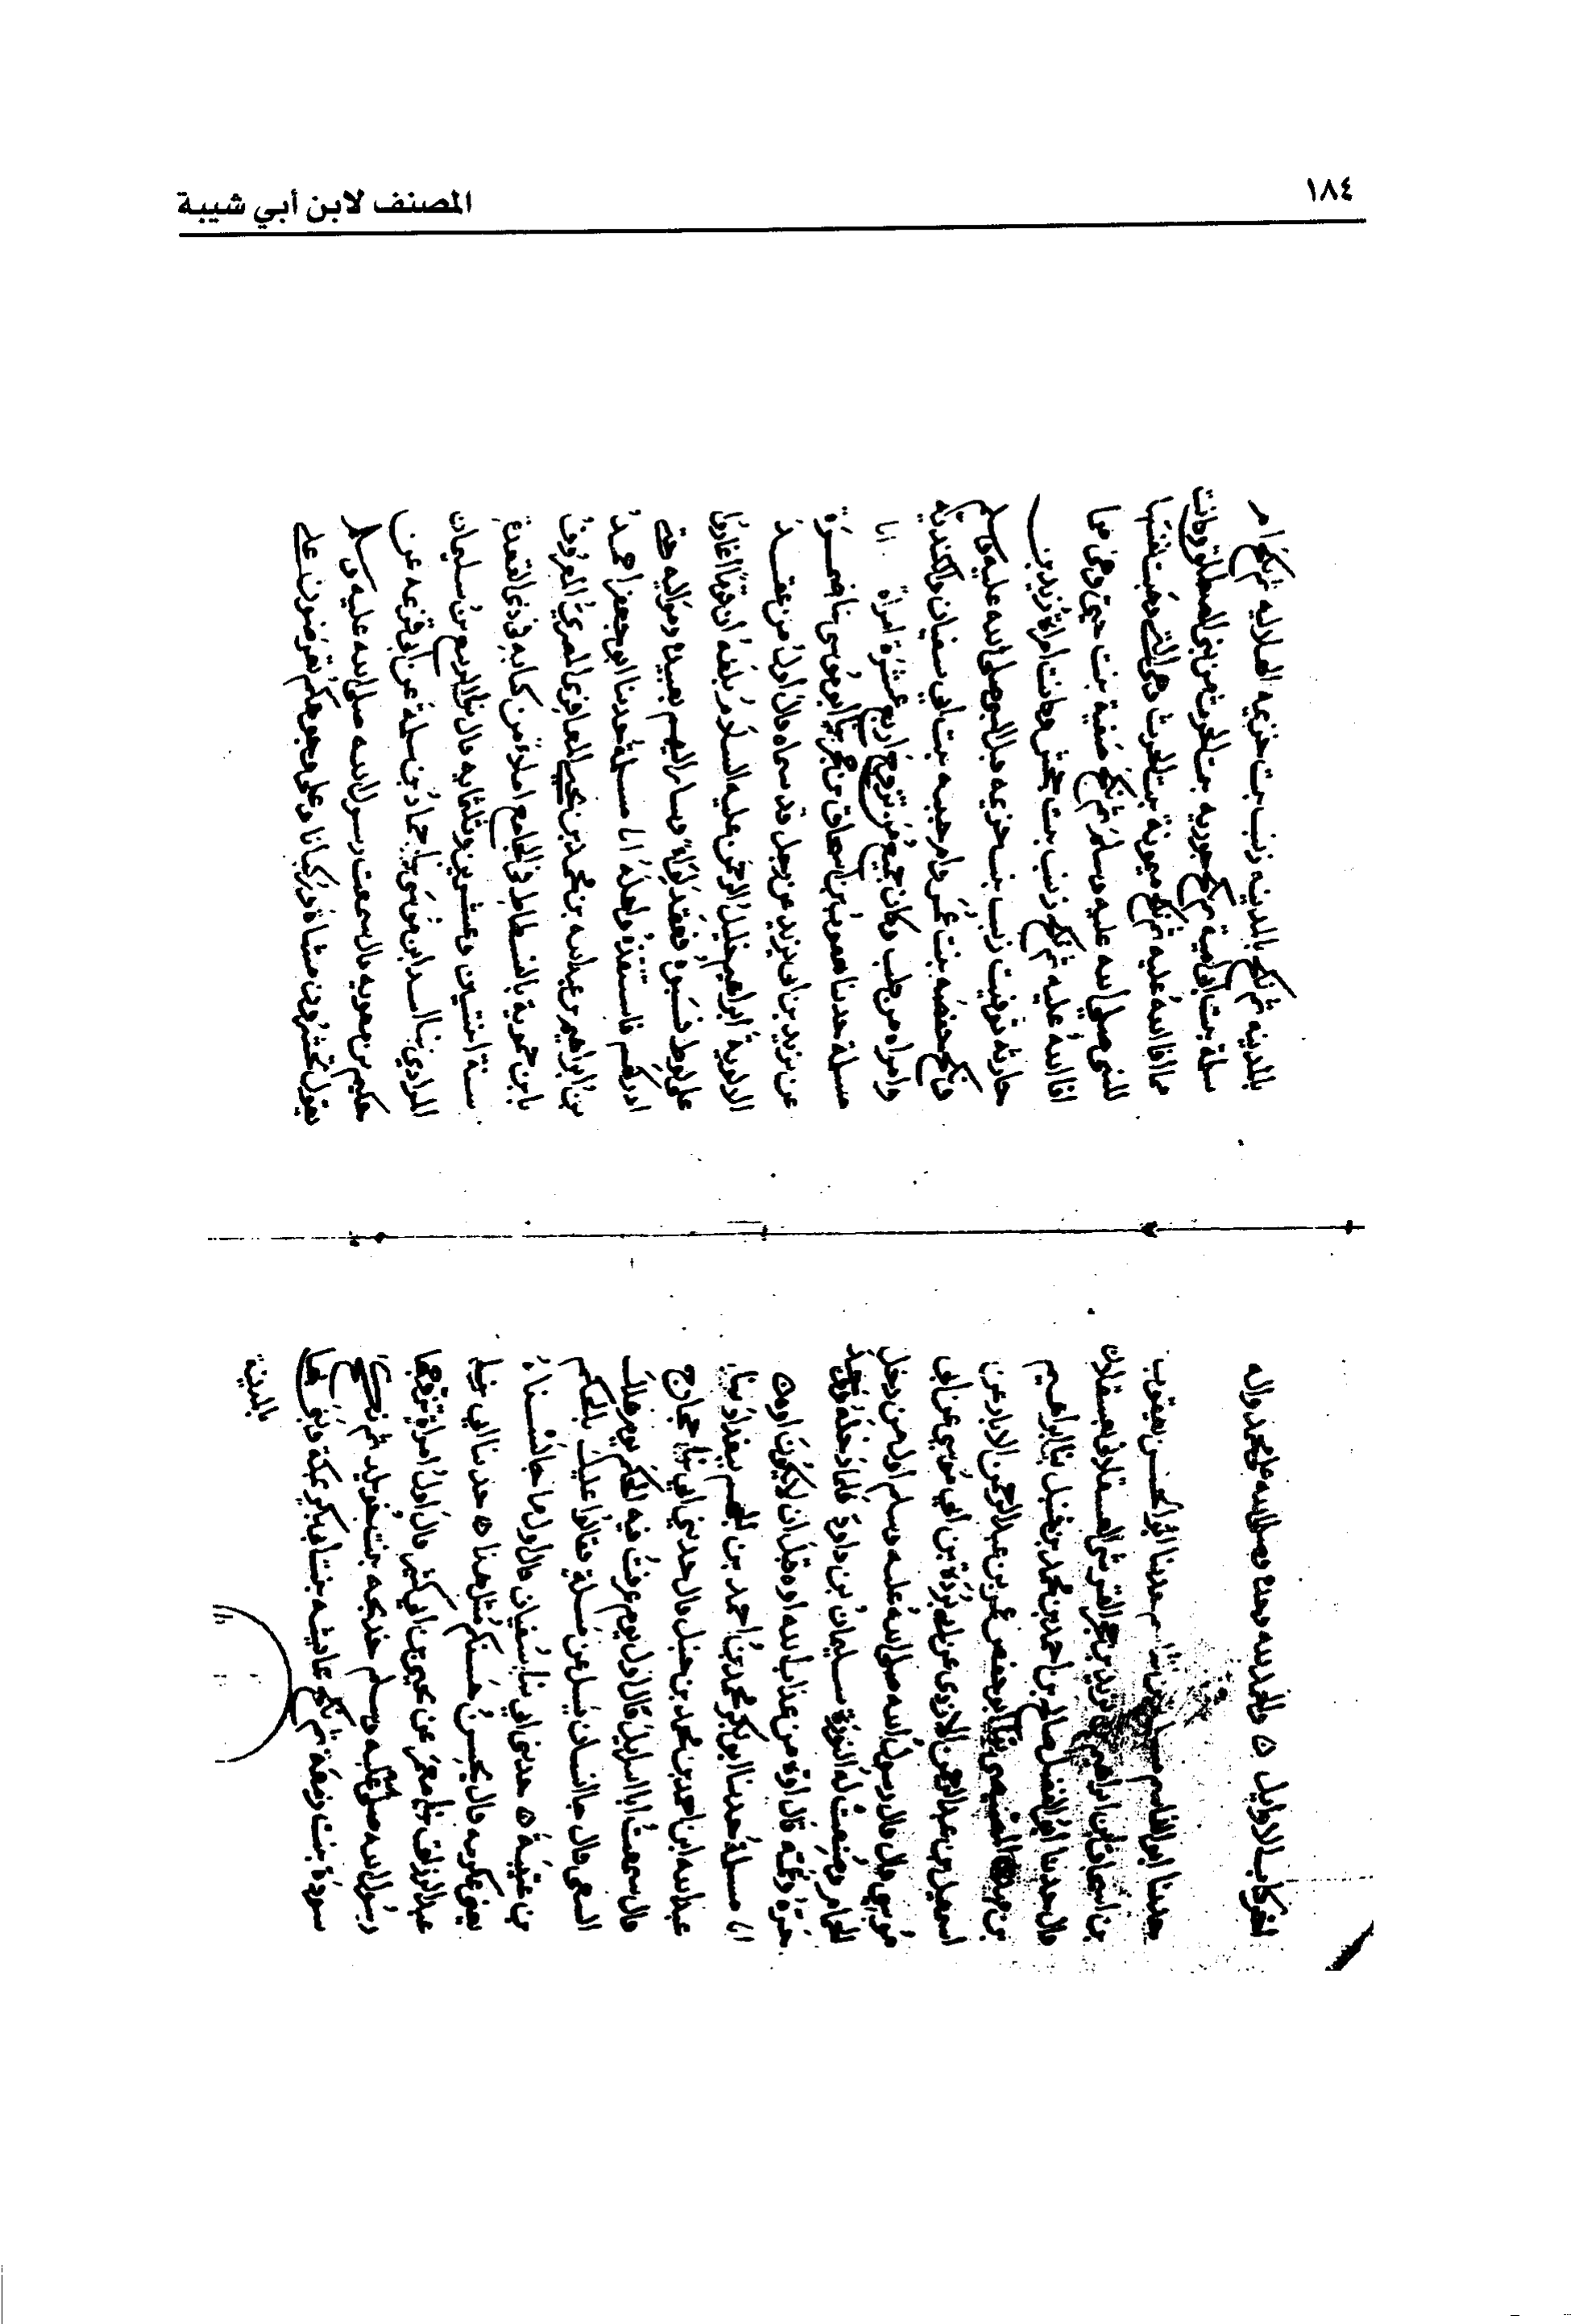 ١٨٤
المصنف لابن أبي شيبة
اخر كتاب الاوايل ه والحمد لله وحده وصلى الله على محمد واله
حدثنا ابو القاسم مسلمة بن حدثنا ابو الحسن يعقوب
بن اسحاق بن ابراهيم بن يزيد بن حجر القرشي العسقلاني بعسقلان
قال حدثنا ابو الفضل صالح بن احمد بن محمد بن حنبل ثنا ابراهيم
بن المصيصي ثنا ابو حفص عمر بن عبد الرحمن الابار عن
اسمعيل بن عبد الرحمن الاودي عن ابي بردة بن ابي موسى عن ابي
موسى قال قال رسول الله صلى الله عليه وسلم اول من دخل
الحمام وصنعت له النورة سليمان بن داود فلما دخله وجد
حره وغمه قال اوه من عذاب الله اوه قبل ان لا يكون اوه ه
انا مسلمة حدثنا ابو بكر محمد بن احمد بن الجهم ببغداد ثنا
عبد الله ابن احمد بن محمد بن حنبل قال حدثني ابي ثنا حجاج
قال سمعت ابا اسرايل قال اول يوم عرفت فيه الحكم يوم هلك
الشعبي قال جا انسان يسل عن مسلة فقالوا عليك بالحكم
بن عتيبة ه حدثني ابي ثنا سفيان قال اول ما جالسناه
يعني عكرمه قال يحسن حسنكم مثل هذا ه حدثنا ابي ثنا
عبد الرزاق ثنا معمر عن يحيى بن ابي كثير قال اول امراة تزوجها
رسول الله صلى الله عليه وسلم خديجه بنت خويلد ثم نكح
سودة بنت زمعة ثم نكح عايشه بنت ابي بكر بمكة وبنى بها
بالمدينه
بالمدينه ثم نكح بالمدينه زينب بنت خزيمه الهلاليه ثم نكح ام
سلمة بنت ابي امية ثم نكح جويريه بنت الحرث من بني المصطلق وكانت
مما افا الله عليه ثم نكح ميمونة بنت الحرث وهي التي وهبت نفسها
للنبي صلى الله عليه وسلم ثم نكح صفية بنت حيي وهي مما
افا الله عليه ثم نكح زينب بنت جحش وكانت امراة زيد بن
حارثه توفيت زينب بنت خزيمه قبل النبي صلى الله عليه وسلم
ونكح حفصه بنت عمر وام حبيبه بنت ابي سفيان والكنديه
وامراه من كلب وكان جميع من تزوج اربع عشرة امراة انا
مسلمة حدثنا هرون بن اسحاق بن ثنا ابو موسى نا ضمرة
عن يزيد بن ابي يزيد عن رجل قد سماه قال اول من عقد
الالوية ابراهيم خليل الرحمن عليه السلام بلغه ان قوما اغاروا
على لوط فسبوه فعقد لواء وسار اليهم بعبيده ومواليه حتى
ادركهم فاستنقذه واهله انا مسلمة حدثنا ابو جعفر احمد
بن ابراهيم بن عبد الله بن محمد بن يحيى المعافري المصري المعروف
بابن حموية بالفسطاط في الجامع املاء من كتابه في ذي القعدة
سنة اثنتين وعشرين وثلثمايه قال ثنا الربيع بن سليمان
المرادي ثنا اسد ابن موسى ثنا حماد بن سلمة عن ابي قزعه عن
حكيم بن معويه قال سمعت رسول الله صلى الله عليه وسلم
يقول تحشرون مشاة وركبانا وعلى وجوهكم تعرضون على